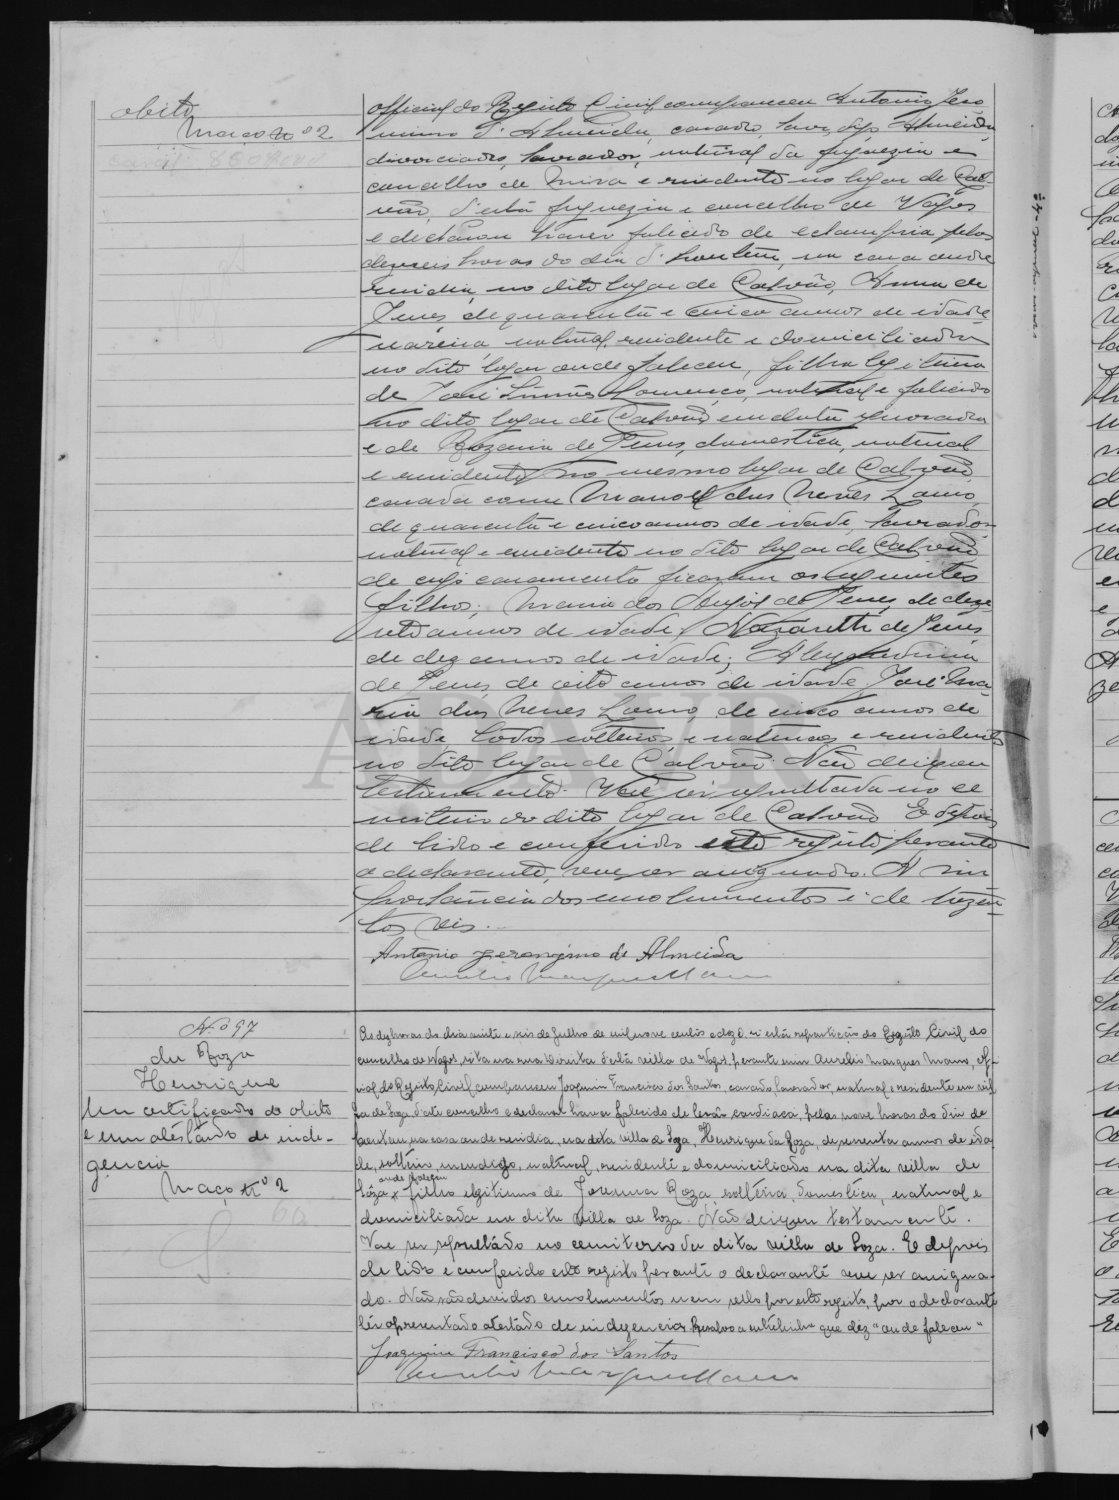 obito
Maço nº 2
official do Registo Civil compareceu Antonio Jero
nimo d'Almeida, casado, lavr, digo Almeida,
divorciado, lavrador, natural da freguezia e
concelho de Mira e residente no logar de Cal-
vão, d'esta freguezia e concelho de Vagos
e declarou haver falecido de eclampsia pelas
dezeseis horas do dia d'hontem, na casa onde
residia, no dito logar de Calvão, Anna de
Jesus, de quarenta e cinco annos de idade
natural, residente e domiciliada
no dito logar onde faleceu, filha legitima
de José Simões Lourenço, natural e falecido
no dito logar de Calvão em data ignorada
e de Rozaria de Jesus, domestica, natural
e residente no mesmo logar de Calvão,
casada com Manoel dos Neves
de quarenta e cinco annos de idade, lavrador
natural e residente no dito logar de Calvão
de cujo casamento ficaram os seguintes
filhos: Maria dos Anjos de Jesus, de deze-
annos de idade; Nazareth de Jesus
de dez annos de idade; Alexandrina
de Jesus de oito annos de idade, José Ma-
ria das Neves de cinco annos de
idade, todos solteiros, e naturaes e residentes
no dito logar de Calvão. Não deixou
testamento. Vae ser sepultada no ce
miterio do dito logar de Calvão E depois
de lido e conferido este registo perante
o declarante, vae ser assignado. A im
portancia dos emolumentos é de trezen-
tos reis.
Antonio Jeronimo de Almeida
Aurelio Marques Mano
N.º 97
da Roza
Henrique
Um certificado do obito
e um atestado de inde-
gencia
Maço nº 2
As dez horas do dia vinte e seis de Julho de mil nove centos e doze, n'esta repartição do Registo Civil do
concelho de Vagos, sita na rua Direita d'esta villa de Vagos, perante mim Aurelio Marques Mano, Of-
icial do Registo Civil compareceu Joaquim Francisco dos Santos, casado, lavrador, natural e residente na vil
la de Soza, d'este concelho e declarou haver falecido de lesão cardiaca, pelas nove horas do dia de
hontem na casa onde residia, na dita villa de Soza, Henrique da Roza, de sessenta annos de ida
de, solteiro, mendigo, natural, residente e domiciliado na dita villa de
onde faleceu
Sôza × filho legitimo de Roza, solteira, domestica, natural e
domiciliada na dita villa de Soza. Não deixou testamento.
Vae ser sepultado no cemiterio da dita villa de Soza. E depois
de lido e conferido este registo perante o declarante vae ser assigna-
do. Não são devidos emolumentos nem sello por este registo, por o declarante
ter apresentado atestado de indegencia Resalvo a entrelinha que diz "onde faleceu"
Joaquim Francisco dos Santos
Aurelio Marques Mano